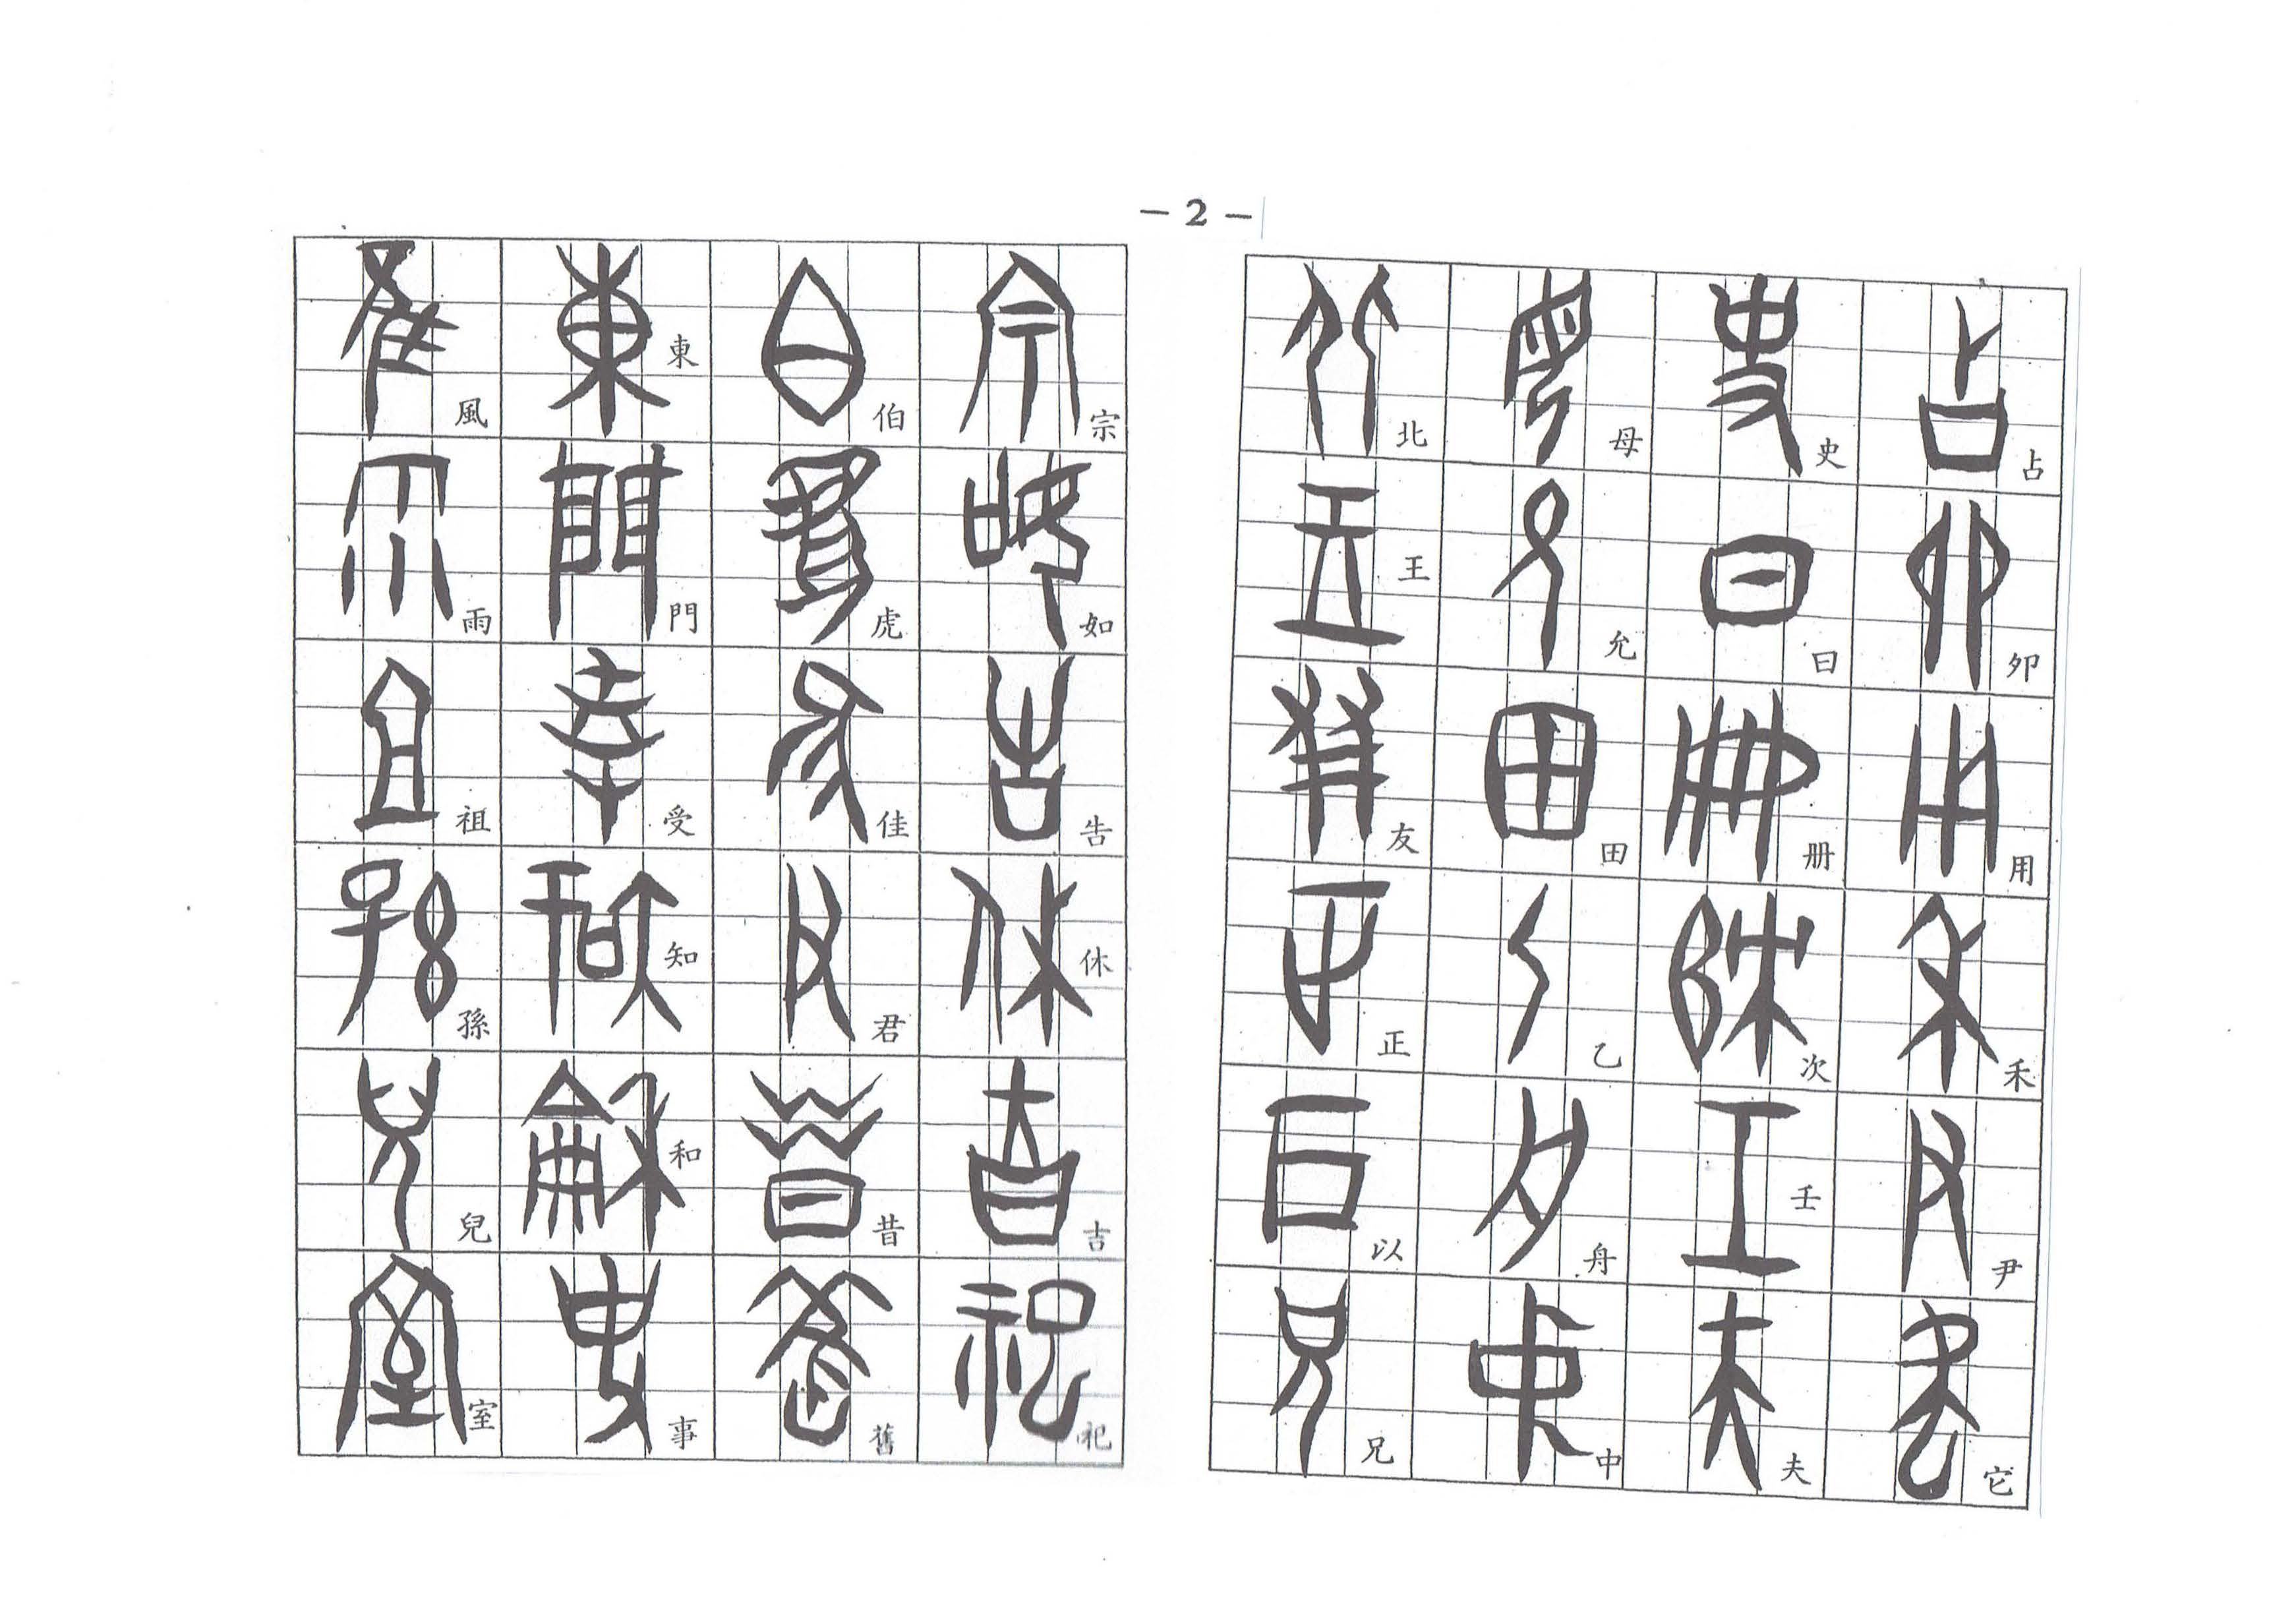 －2－
占
卯
用
禾
尹
它
史
曰
册
次
壬
夫
母
允
田
乙
舟
中
北
王
友
正
以
兄
宗
如
告
休
吉
祀
伯
虎
佳
君
昔
舊
東
門
受
知
和
事
風
雨
祖
孫
兒
室